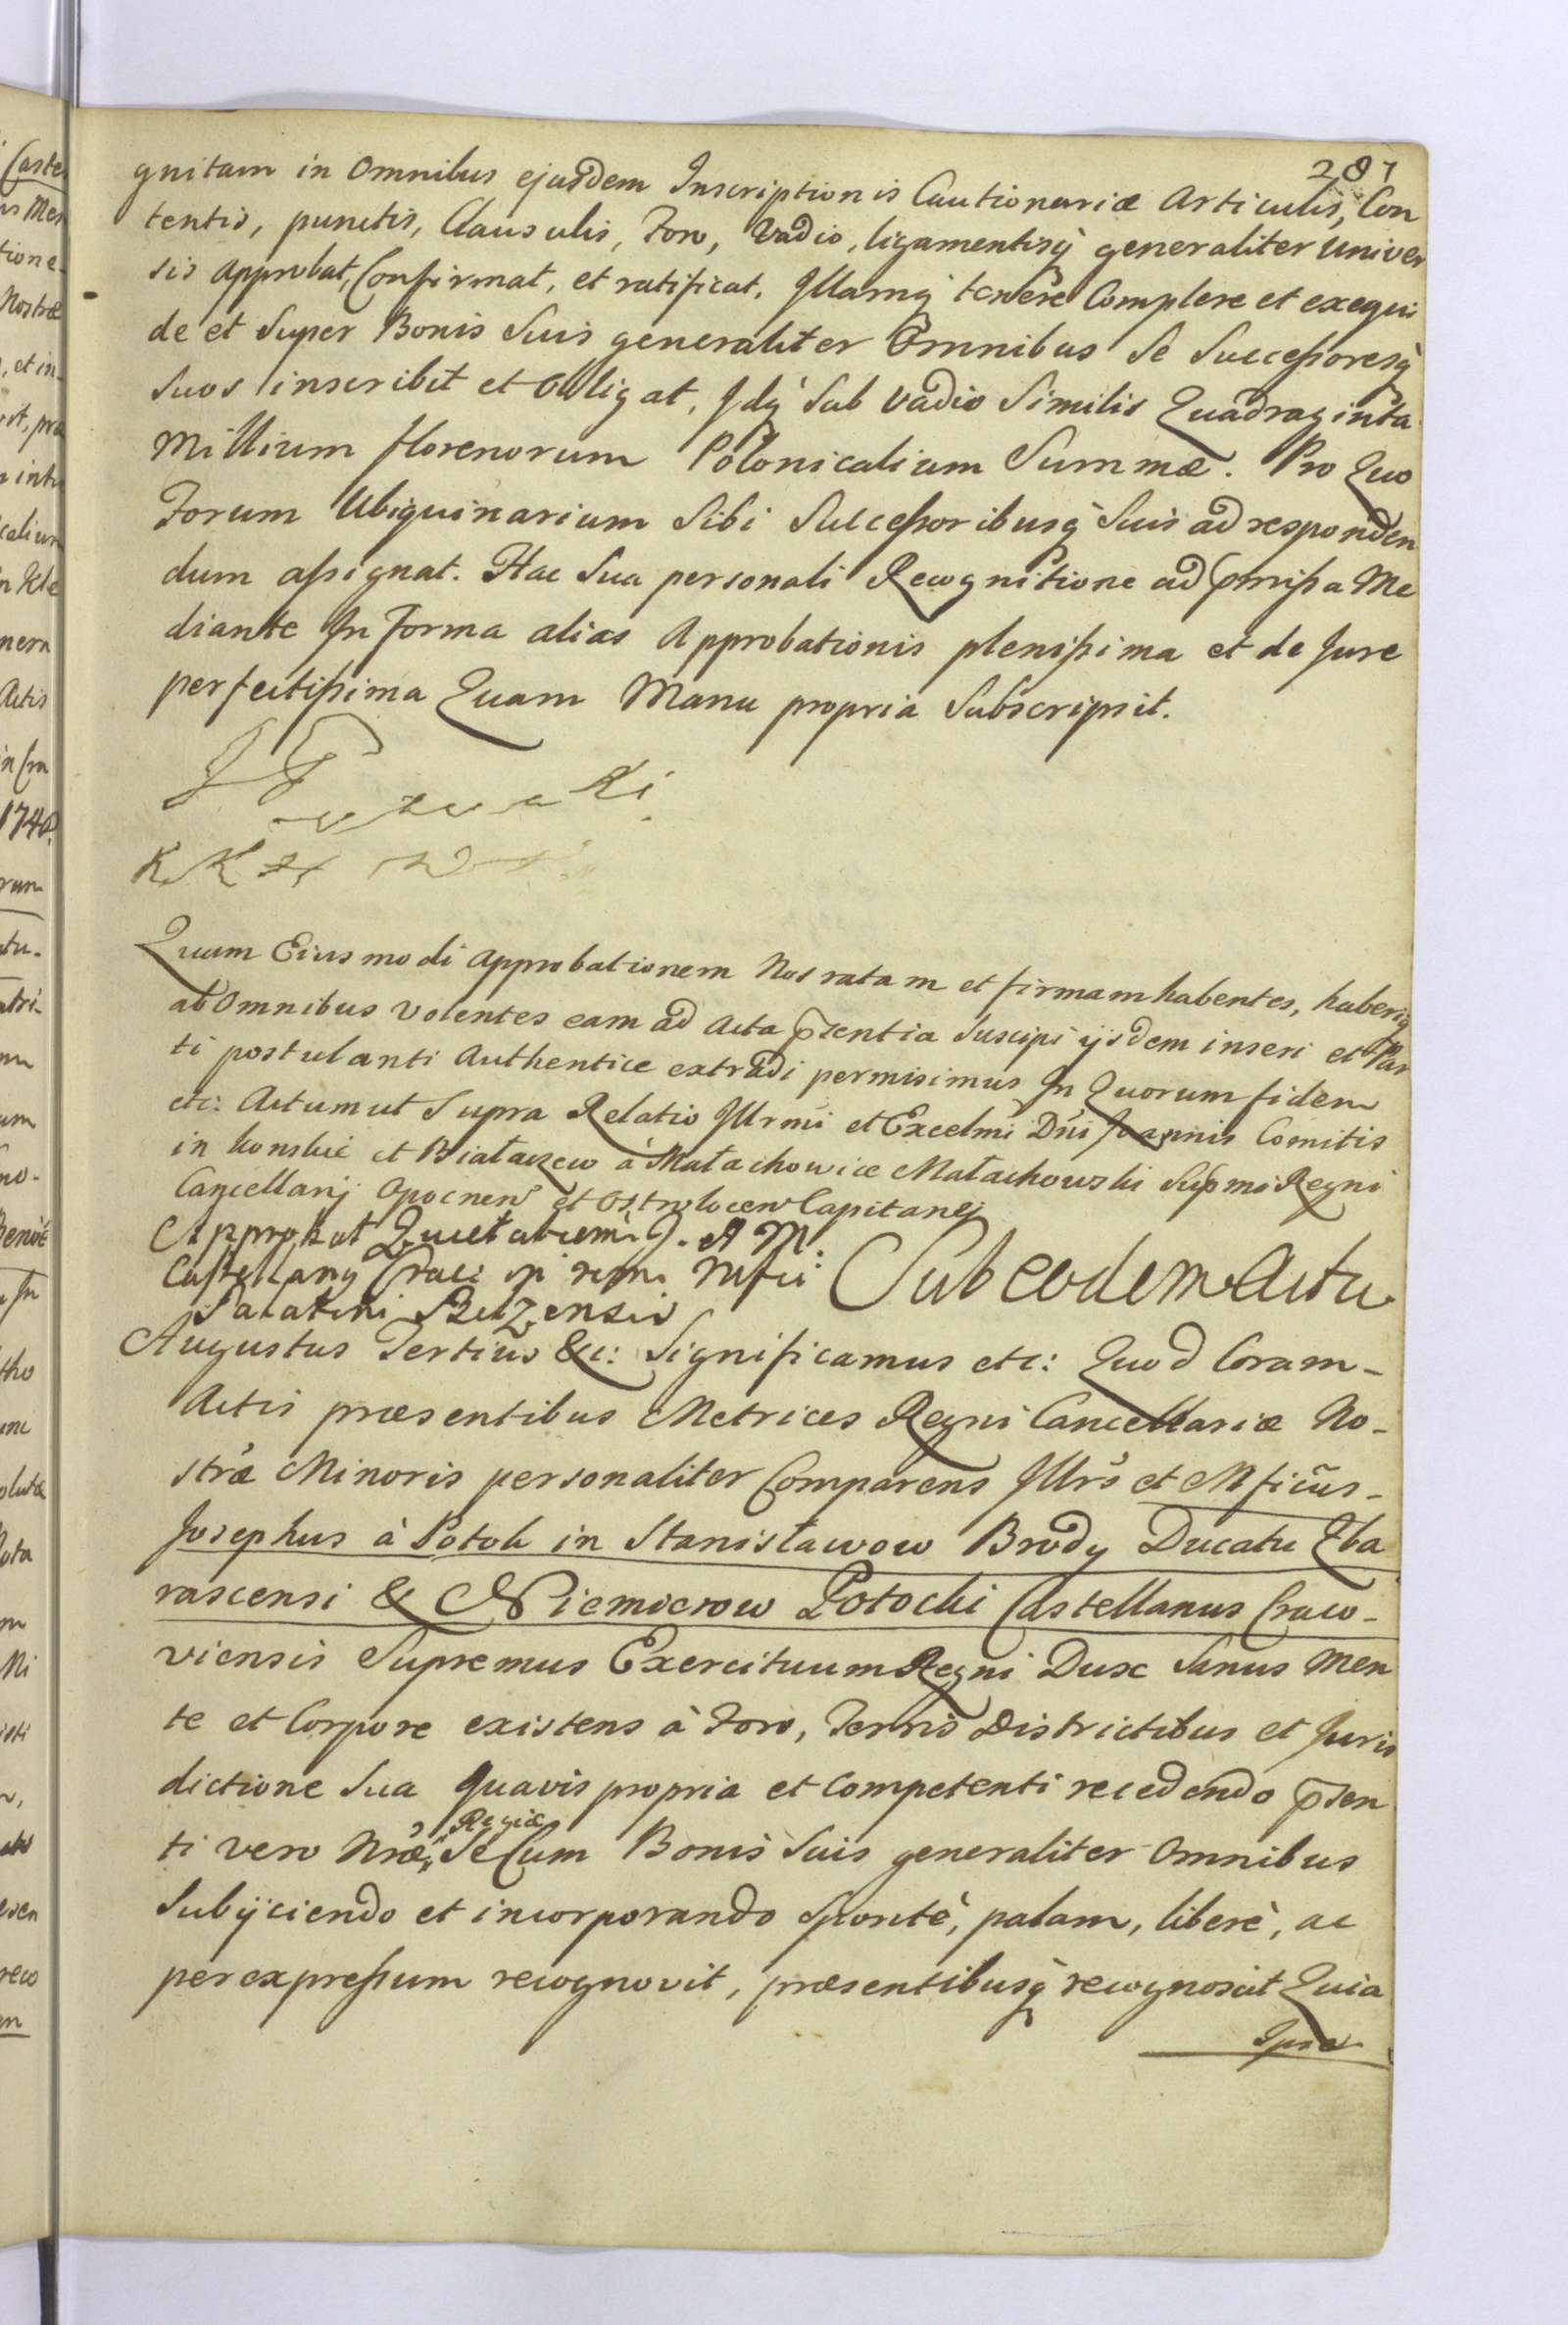 287
gnitam in Omnibus ejusdem Inscriptionis Cautionariæ Articulis, Con
tentis, punctis, Clausulis, Foro, Vadio, ligamentisq̀ generaliter Univer
sis Approbat, Confirmat, et ratificat. Illamq̀ tenere Complere et exequi
de et Super Bonis Suis generaliter Omnibus Se Successoresq̀
Suos inscribit et Obligat, Idq̀ Sub Vadio Similis Quadraginta
Millium florenorum Polonicalium Summæ. Pro Quo
Forum Ubiquinarium Sibi Successoribusq̀ Suis ad responden
dum assignat. Hac Sua personali Recognitione ad p̄missa Me
diante In Forma alias Approbationis plenissima et de Jure
perfectissima Quam Manu propria Subscripsit.
K K
Quam Eiusmodi Approbationem Nos ratam et firmam habentes, haberiq̀
ab Omnibus Volentes eam ad Acta p̄sentia Suscipi ijsdem inseri et Par
ti postulanti Authentice extradi permisimus In Quorum fidem
etc: Actum ut Supra Relatio Illrmi et Excelmi Dn̄i Joannis Comitis
in Konskie et Białaczew à Małachowice Małachowski Sup̄mi Regni
Cancellarij Opocnen et Ostrolocen Capitanej
Approbat Quietationem J. A M:
Castellany Crac: in rem Mfci:
Palatini Belzensis
Sub eodem Actu
Augustus Tertius &c: Significamus etc: Quod Coram-
Actis præsentibus Metrices Regni Cancellariæ No-
stræ Minoris personaliter Comparens Illrs̄ et Mficūs-
Josephus à Potok in Stanisławow Brody Ducatu Zba
rascensi & Niemierow Potocki Castellanus Craco-
viensis Supremus Exercituum Regni Dux Sanus Men
te et Corpore existens à Foro, Terris Districtibus et Juris
dictione Sua quavis propria et Competenti recedendo p̄sen
ti vero Nrǣ, Regiæ Se Cum Bonis Suis generaliter Omnibus
Subijciendo et incorporando Spontè, palam, liberè, ac
per expressum recognovit, præsentibusq̀ recognoscit Quia
Ipse